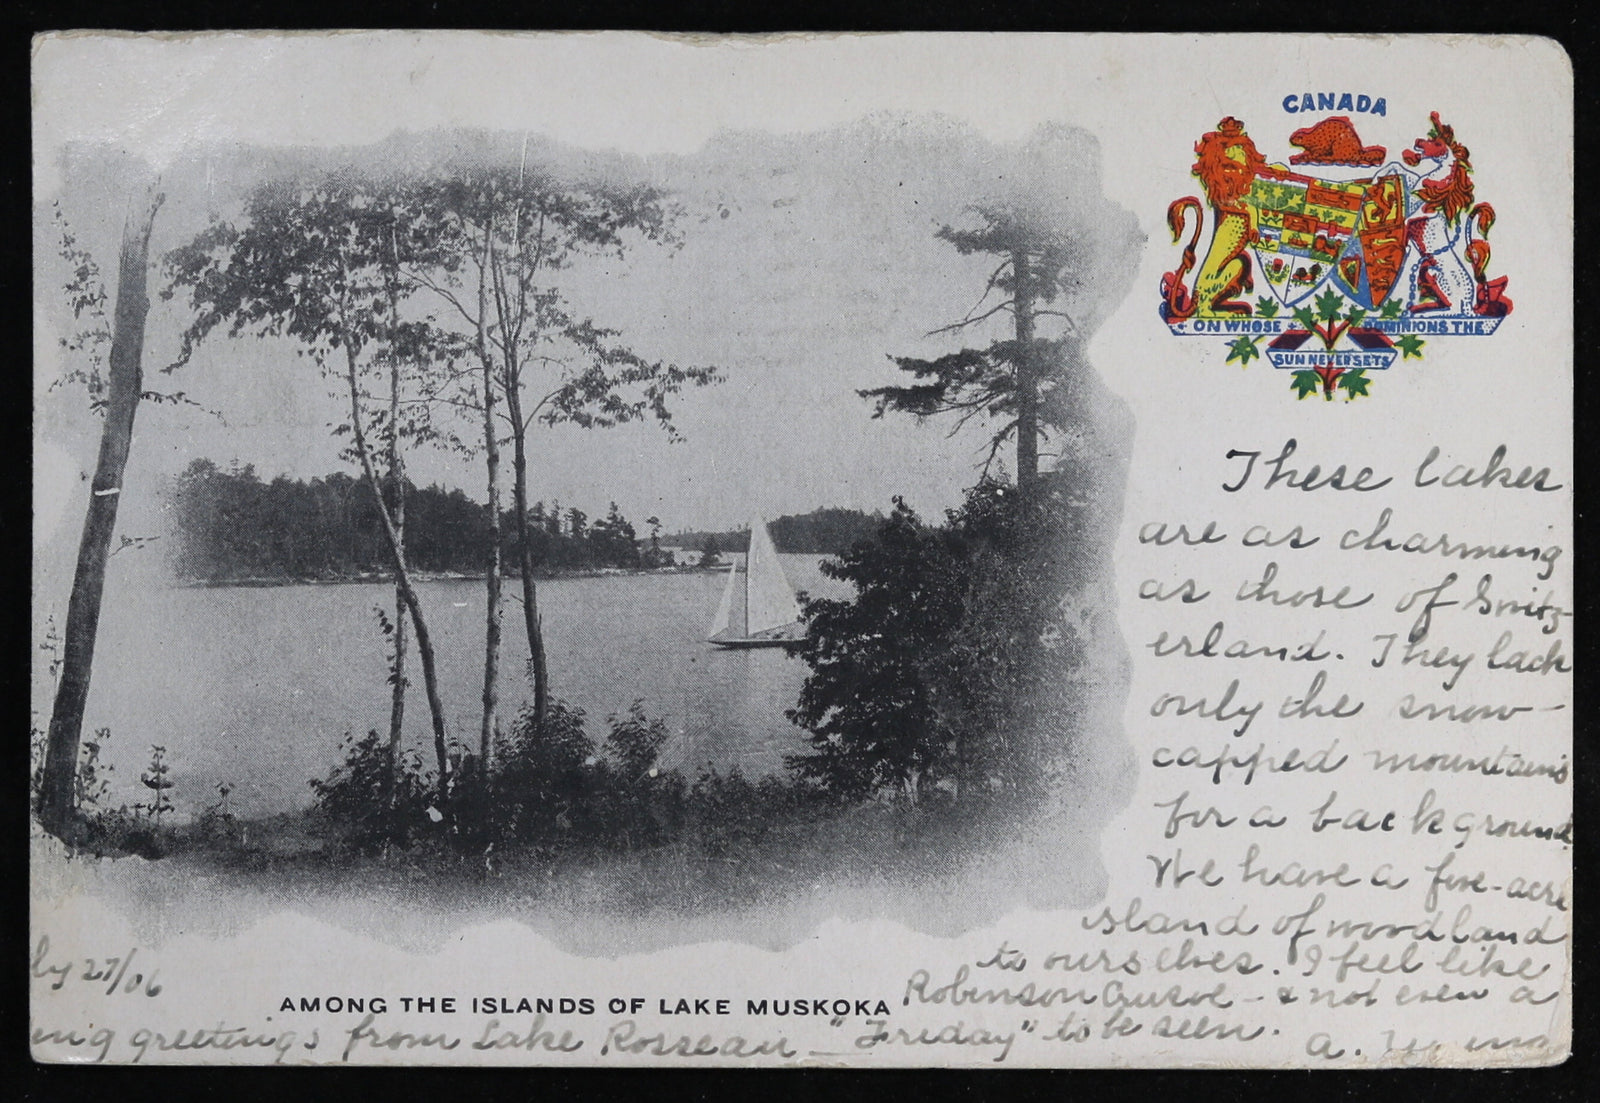 CANADA
ON WHOSE DOMINIONS THE
SUN NEVER SETS
These lakes
are as charming
as those of Switz-
erland. They lack
only the snow-
capped mountains
for a background
We have a five-acre
island of woodland
to ourselves. I feel like
Robinson Crusoe - & not even a
"Friday" to be seen.
a.
ly 27/06
AMONG THE ISLANDS OF LAKE MUSKOKA
ing greetings from Lake Rosseau